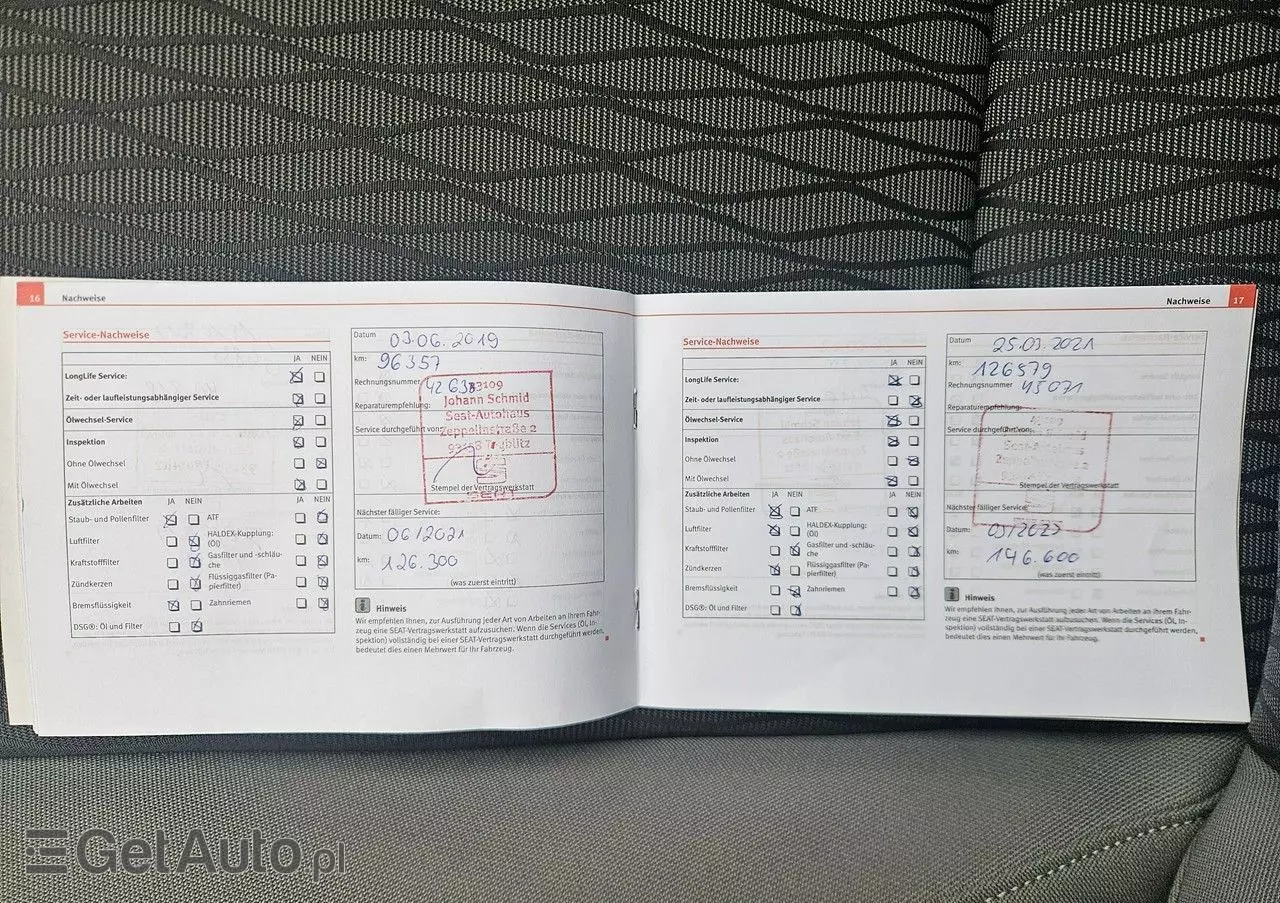 16 Nachweise
Service-Nachweise
JA NEIN
LongLife Service:
Zeit- oder laufleistungsabhängiger Service
Ölwechsel-Service
Inspektion
Ohne Ölwechsel
Mit Ölwechsel
Zusätzliche Arbeiten JA NEIN JA NEIN
Staub- und Pollenfilter ATF
Luftfilter HALDEX-Kupplung:
(Öl)
Kraftstofffilter Gasfilter und -schläu-
che
Zündkerzen Flüssiggasfilter (Pa-
pierfilter)
Bremsflüssigkeit Zahnriemen
DSG®: Öl und Filter
Datum 03.06.2019
km: 96357
Rechnungsnummer
Reparaturempfehlung:
Service durchgeführt von:
Johann Schmid
Seat-Autohaus
Zeppelinstraße 2
Stempel der Vertragswerkstatt
SEAT
Nächster fälliger Service:
Datum: 06/2021
km: 126.300
(was zuerst eintritt)
Hinweis
Wir empfehlen Ihnen, zur Ausführung jeder Art von Arbeiten an Ihrem Fahr-
zeug eine SEAT-Vertragswerkstatt aufzusuchen. Wenn die Services (Öl, In-
spektion) vollständig bei einer SEAT-Vertragswerkstatt durchgeführt werden,
bedeutet dies einen Mehrwert für Ihr Fahrzeug.
Nachweise 17
Service-Nachweise
JA NEIN
LongLife Service:
Zeit- oder laufleistungsabhängiger Service
Ölwechsel-Service
Inspektion
Ohne Ölwechsel
Mit Ölwechsel
Zusätzliche Arbeiten JA NEIN JA NEIN
Staub- und Pollenfilter ATF
Luftfilter HALDEX-Kupplung:
(Öl)
Kraftstofffilter Gasfilter und -schläu-
che
Zündkerzen Flüssiggasfilter (Pa-
pierfilter)
Bremsflüssigkeit Zahnriemen
DSG®: Öl und Filter
Datum 25.03.2021
km: 126579
Rechnungsnummer 45071
Reparaturempfehlung:
Service durchgeführt von:
Stempel der Vertragswerkstatt
Nächster fälliger Service:
Datum: 03/2023
km: 146.600
(was zuerst eintritt)
Hinweis
Wir empfehlen Ihnen, zur Ausführung jeder Art von Arbeiten an Ihrem Fahr-
zeug eine SEAT-Vertragswerkstatt aufzusuchen. Wenn die Services (Öl, In-
spektion) vollständig bei einer SEAT-Vertragswerkstatt durchgeführt werden,
bedeutet dies einen Mehrwert für Ihr Fahrzeug.
GetAuto.pl